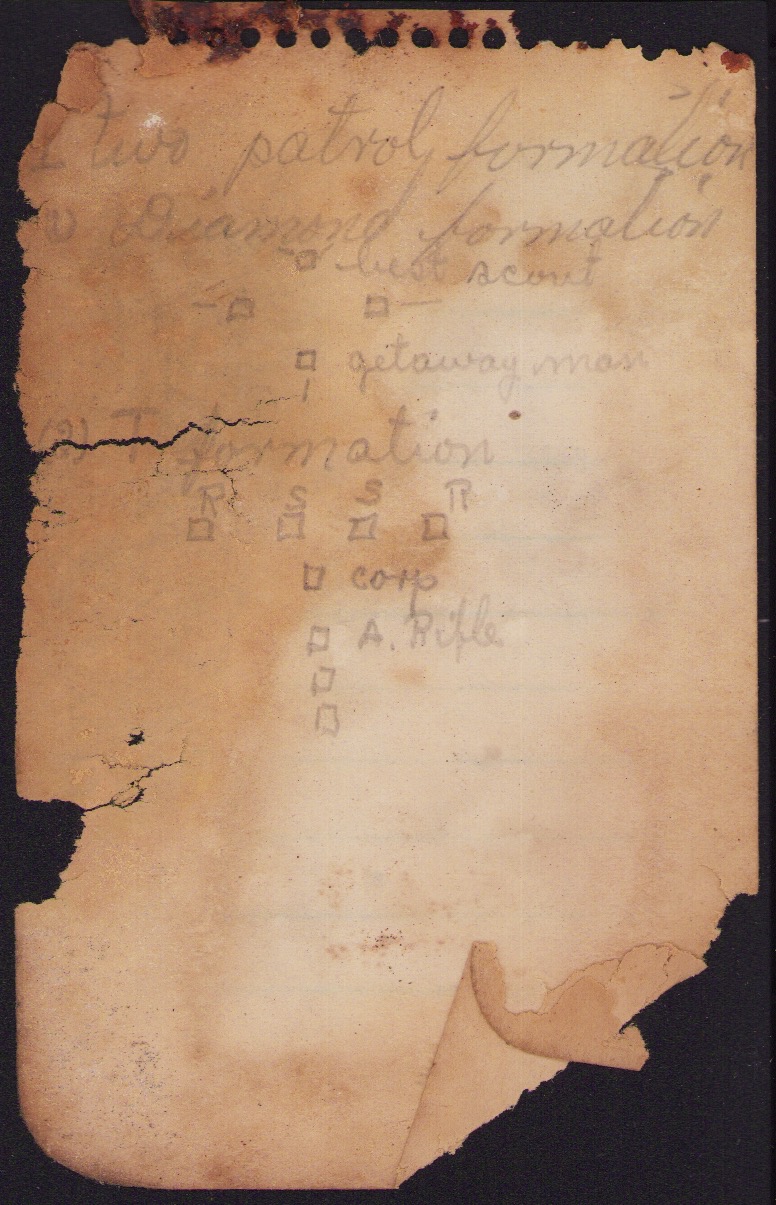 I two patrol formation
(1) Diamond formation
best scout
getaway man
(2) T formation
R S S R
corp
A. Rifle